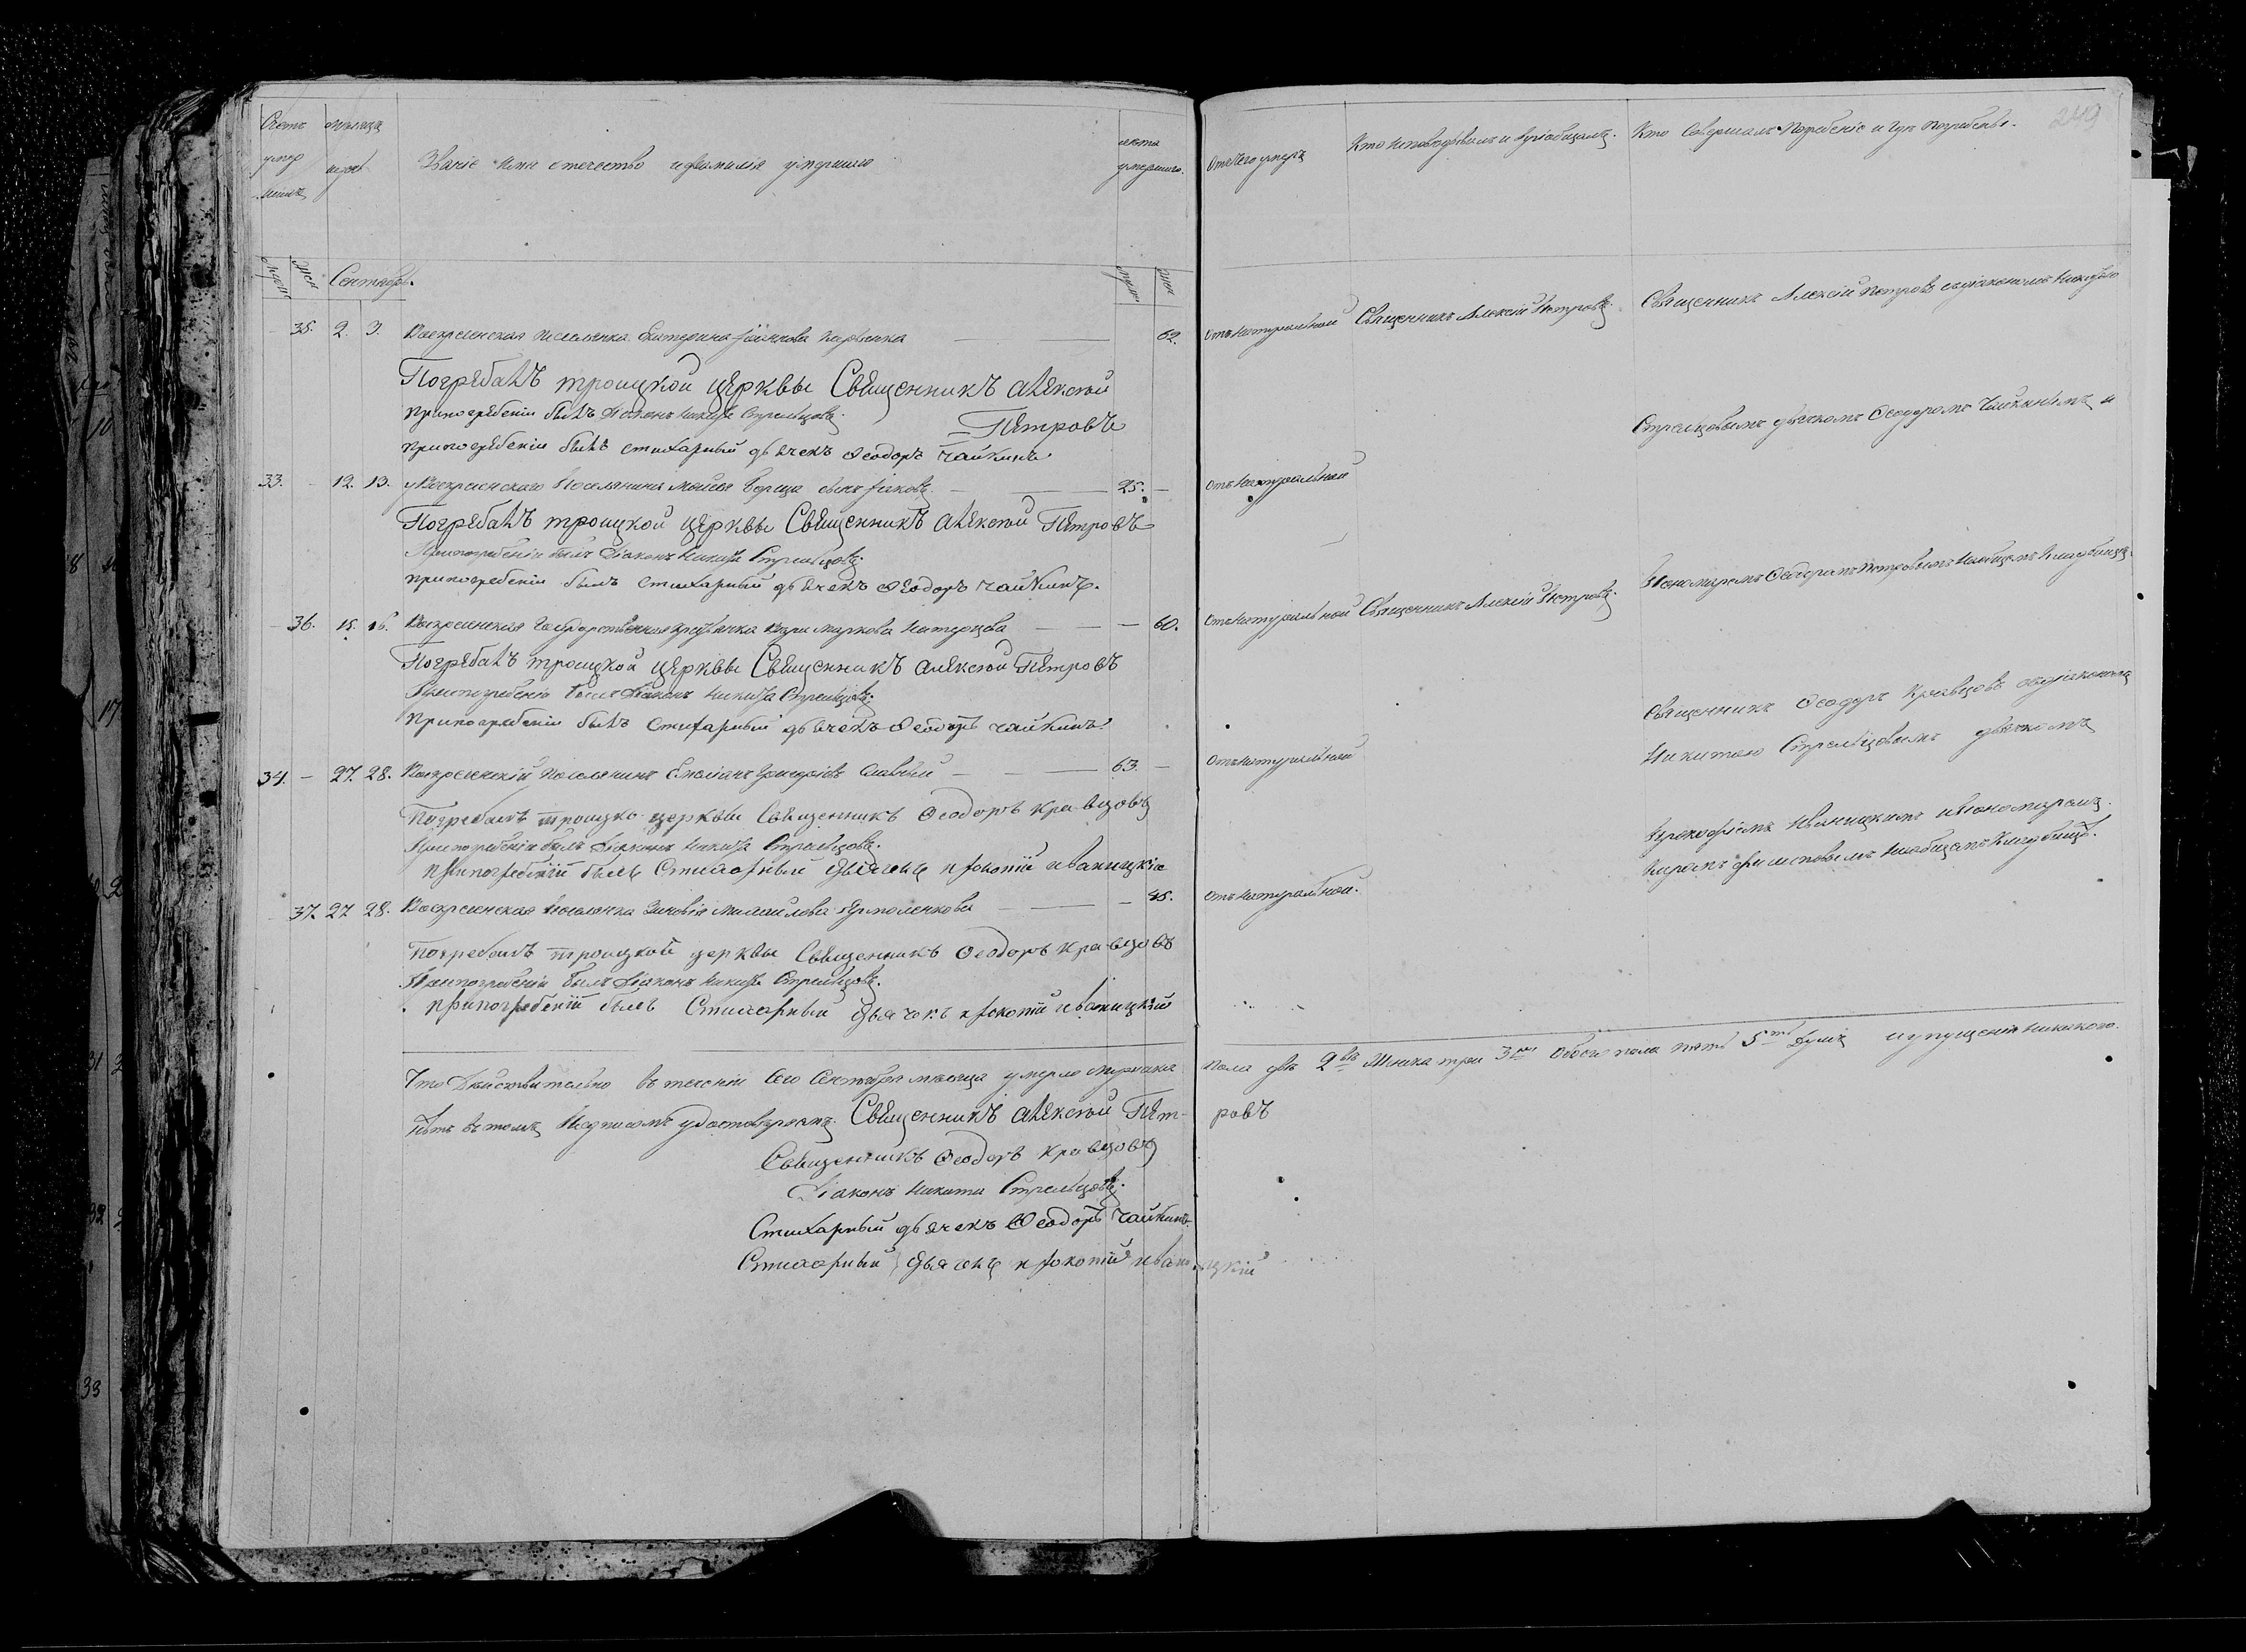 249
Счетъ умершихъ
Мѣсяца
Званіе Имя отечество и фамилія умершаго
лѣта умершаго.
отъ чего умеръ
Кто исповѣдывалъ и пріобщалъ.
Кто Совершалъ Погребеніе и гдѣ Погребены.
Сентябрь.
35. 2. 3. Воскресенская поселянка Екатерина 62. отъ натуральной Священникъ Алексій Петровъ. Священникъ Алексій Петровъ съ діакономъ Никитою
Погребалъ троицкой церквы Священникъ Алексѣй
При погребеніи былъ Діаконъ Никита Стрельцовъ.
Петровъ
Стрельцовымъ дьячкомъ Ѳеодоромъ Чайкинымъ и
при погребеніи былъ стихарный дьячекъ Ѳеодоръ чайкинъ
33. 12. 13. у Воскресенскаго Поселянина Моисея сынъ Іаковъ 25. отъ натуральной
Погребалъ троицкой церквы Священникъ Алексѣй Петровъ
При погребеніи былъ Діаконъ Никита Стрельцовъ.
при погребеніи былъ стихарный дьячекъ Ѳеодоръ чайкинъ.
Пономаремъ Петровымъ на общемъ Кладбищѣ.
36. 15. 16. Воскресенская Маркова 60. отъ натуральной Священникъ Алексій Петровъ.
Погребалъ троицкой церквы Священникъ Алексѣй Петровъ
При погребеніи былъ Діаконъ Никита Стрельцовъ.
При погребеніи былъ Стихарный дьячекъ Ѳеодоръ чайкинъ.
Священникъ Ѳеодоръ Кравцовъ съ діакономъ
Никитою Стрельцовымъ дьячкомъ
34. 27. 28. Воскресенскій Поселянинъ Емеліанъ Григоріевъ 63. отъ натуральной
Погребалъ троицко церквы Священникъ Ѳеодоръ кравцовъ
При погребеніи былъ Діаконъ Никита Стрельцовъ.
при погребеніи былъ Стихарный Дьячекъ прокопій иваницкій
Прокофіемъ Иваницкимъ и пономаремъ
на общемъ Кладбищѣ.
37. 27. 28. Воскресенская поселянка Зиновія Михайлова Ермоленкова 45. отъ натуральной.
Погребалъ троицкой церквы Священникъ Ѳеодоръ кравцовъ
При погребеніи былъ Діаконъ Никита Стрельцовъ.
при погребеніи былъ Стихарный Дьячекъ прокопій иваницкій
Что Дѣйствительно въ теченіи сего Сентября мѣсяца умерло мужеска пола двѣ 2вѣ Женска три 3ри обоего пола пять 5ть душъ и упущенія никакого.
Нѣтъ въ томъ Подписомъ удостовѣряемъ. Священникъ Алексѣй Петровъ
Священникъ Ѳеодоръ Кравцовъ
Діаконъ Никита Стрельцовъ.
Стихарный дьячекъ Ѳеодоръ Чайкинъ.
Стихарный Дьячекъ прокопій иваницкій